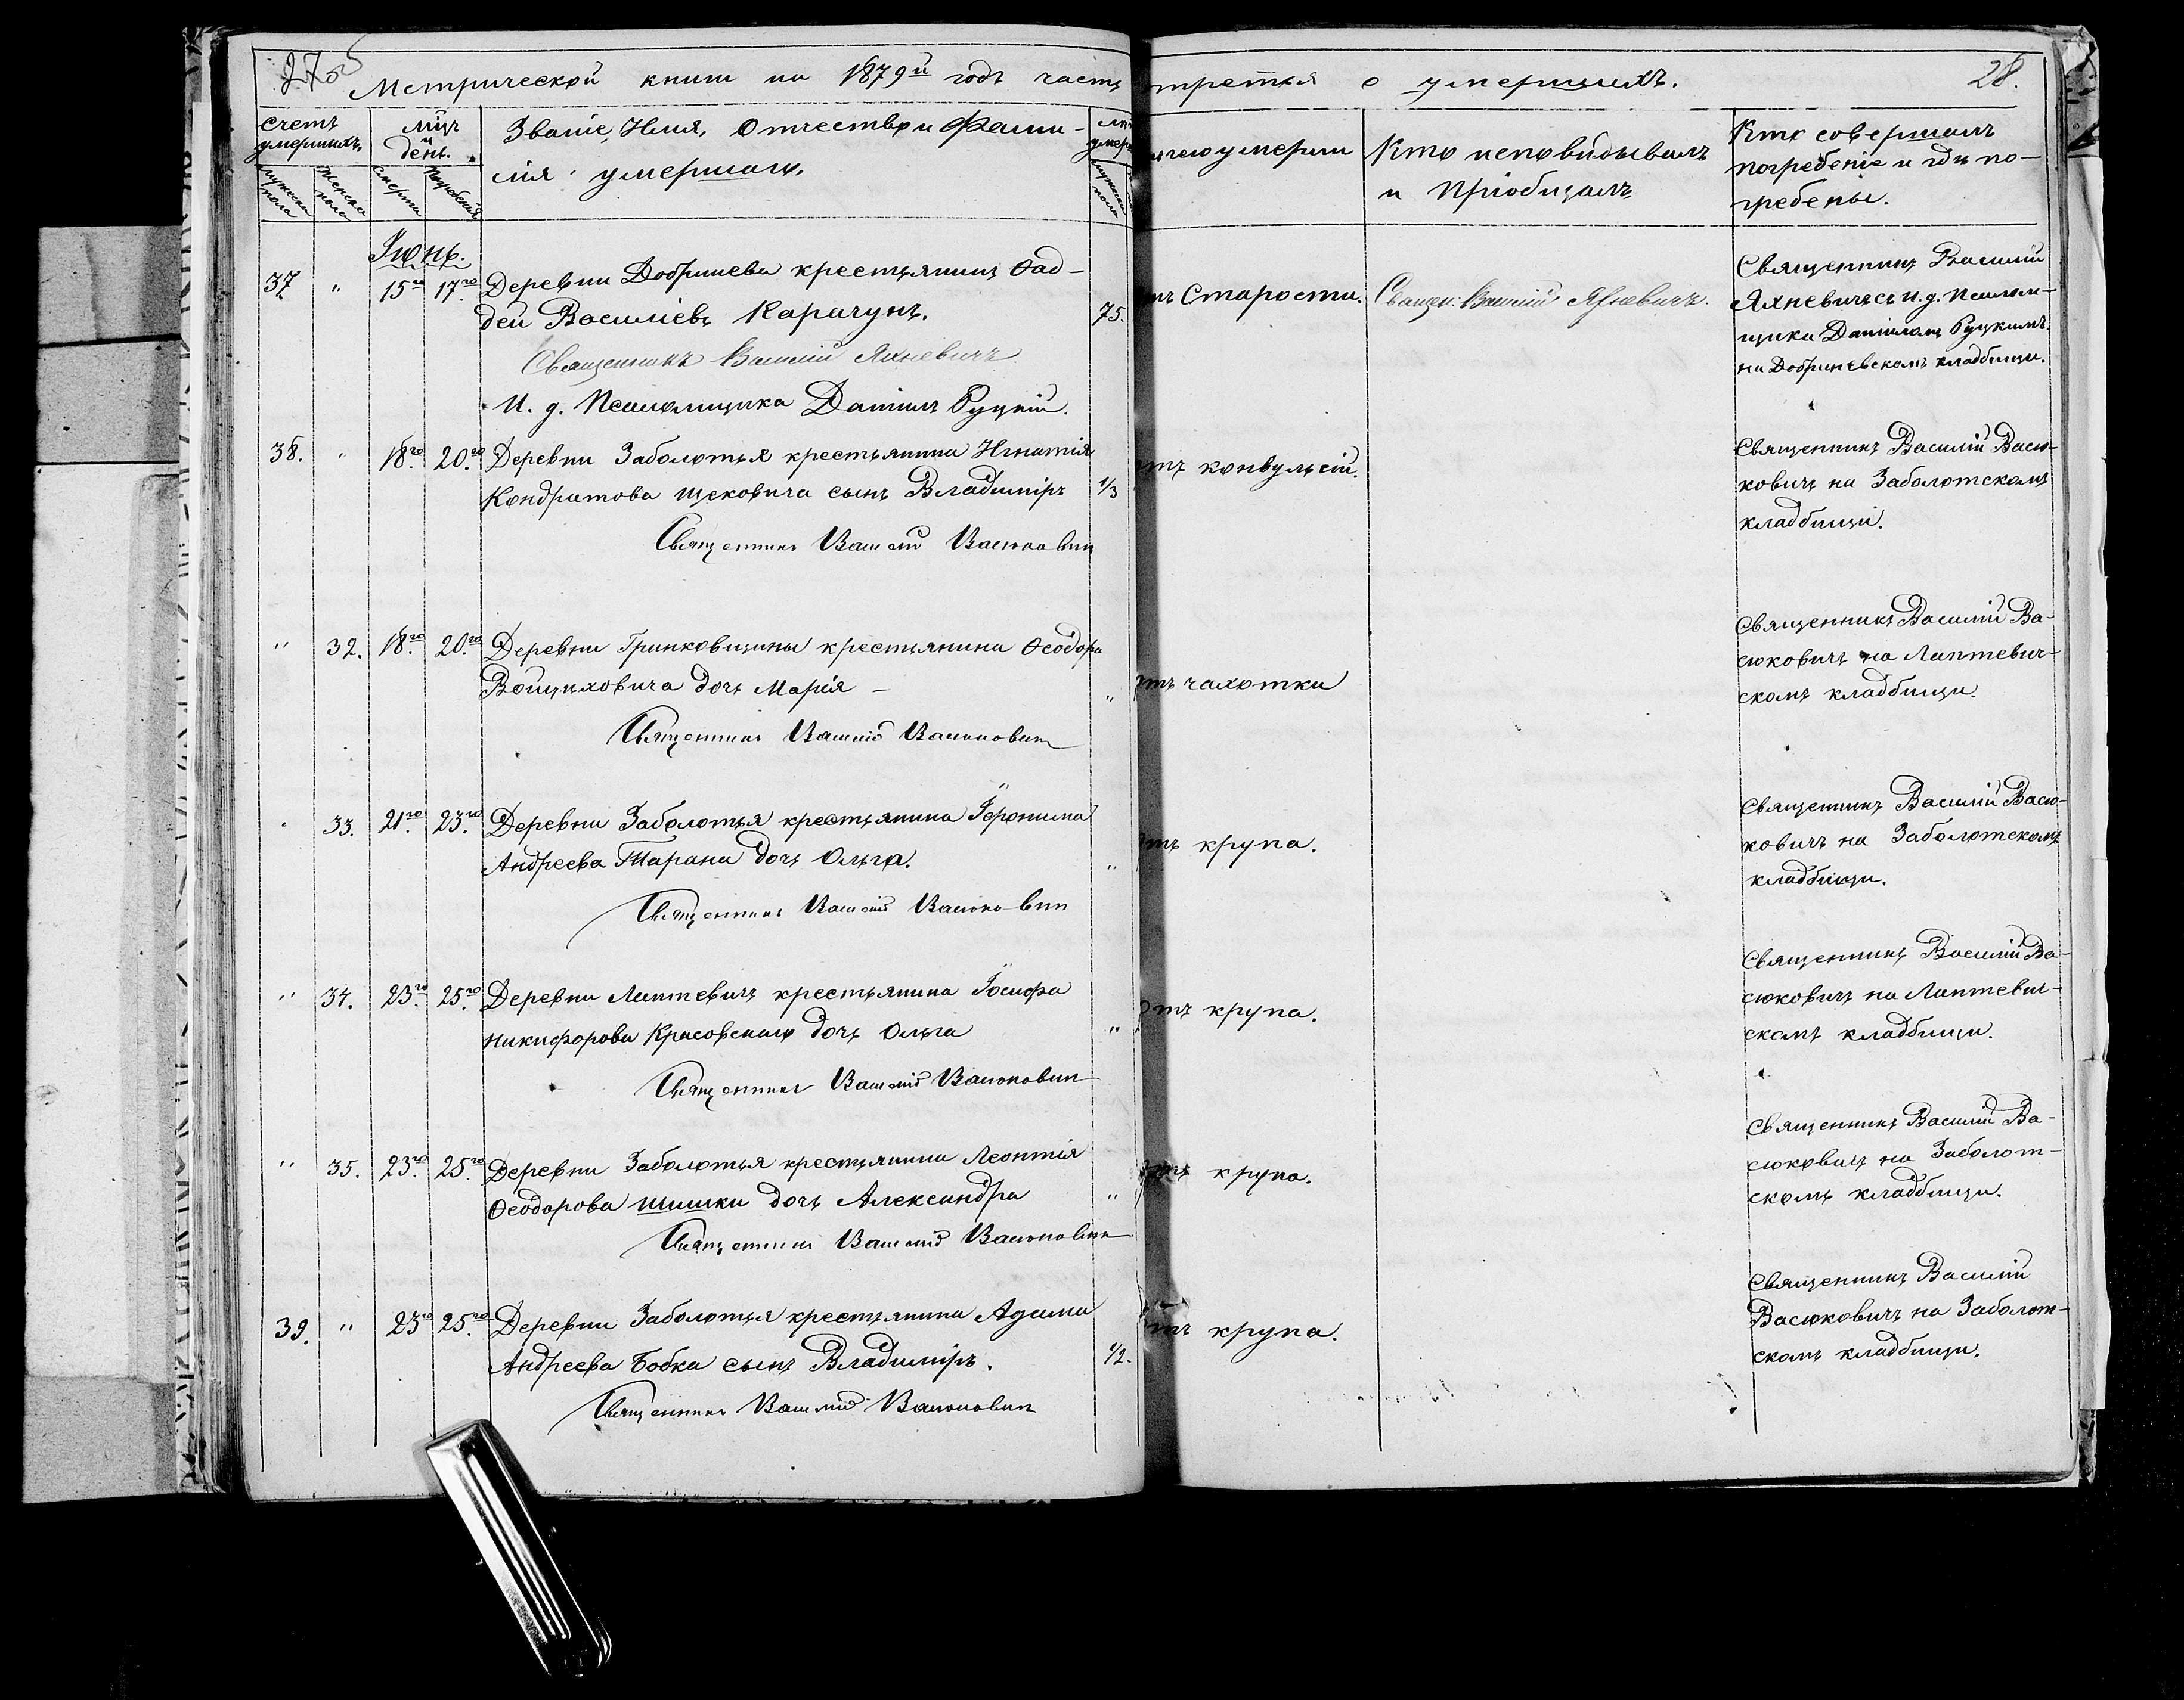 Метрической книги на 1879й годъ часть третья о умершихъ. 28.
Счетъ умершихъ.
Мужеска пола
Женска пола
Мцъ и день.
Смерти
Погребенія
Званіе, Имя, Отчество и Фами-
лія умершаго.
Мужеска пола
чего умерли
Кто исповѣдывалъ
и пріобщалъ
Кто совершалъ
погребеніе и гдѣ по-
гребены.
Іюнь.
37. " 15го 17го Деревни Добринева крестьянинъ Ѳад-
дей Васильевъ Карачунъ. 75.
Священникъ Василій Яхневичъ
И. д. Псаломщика Даніилъ Руцкій.
Старости.
Священ. Василій Яхневичъ.
Священникъ Василій
Яхневичъ съ и. д. псалом-
щика Даніиломъ Руцкимъ.
на Добриневскомъ кладбищѣ.
38. " 18го 20го Деревни Заболотья крестьянина Игнатія
Кондратова Щековича сынъ Владиміръ 1/3
Священникъ Василій Васюковичъ
отъ конвульсій.
Священникъ Василій Васю-
ковичъ на Заболотскомъ
кладбищѣ.
" 32. 18го 20го Деревни Гринковщины крестьянина Ѳеодора
Войцѣховича дочь Марія "
Священникъ Василій Васюковичъ
отъ чахотки
Священникъ Василій Ва-
сюковичъ на Лаптевич-
скомъ кладбищѣ.
" 33. 21го 23го Деревни Заболотья крестьянина Іеронима
Андреева Тарана дочь Ольга. "
Священникъ Василій Васюковичъ
отъ крупа.
Священникъ Василій Васю-
ковичъ на Заболотскомъ
кладбищѣ.
" 34. 23го 25го Деревни Лаптевичъ крестьянина Іосифа
Никифорова Красовскаго дочь Ольга "
Священникъ Василій Васюковичъ
отъ крупа.
Священникъ Василій Ва-
сюковичъ на Лаптевич-
скомъ кладбищѣ.
" 35. 23го 25го Деревни Заболотья крестьянина Леонтія
Ѳеодорова Шишки дочь Александра "
Священникъ Василій Васюковичъ
отъ крупа.
Священникъ Василій Ва-
сюковичъ на Заболот-
скомъ кладбищѣ.
39. " 23го 25го Деревни Заболотья крестьянина Адама
Андреева Бобка сынъ Владиміръ. 1/2.
Священникъ Василій Васюковичъ
отъ крупа.
Священникъ Василій
Васюковичъ на Заболот-
скомъ кладбищѣ.